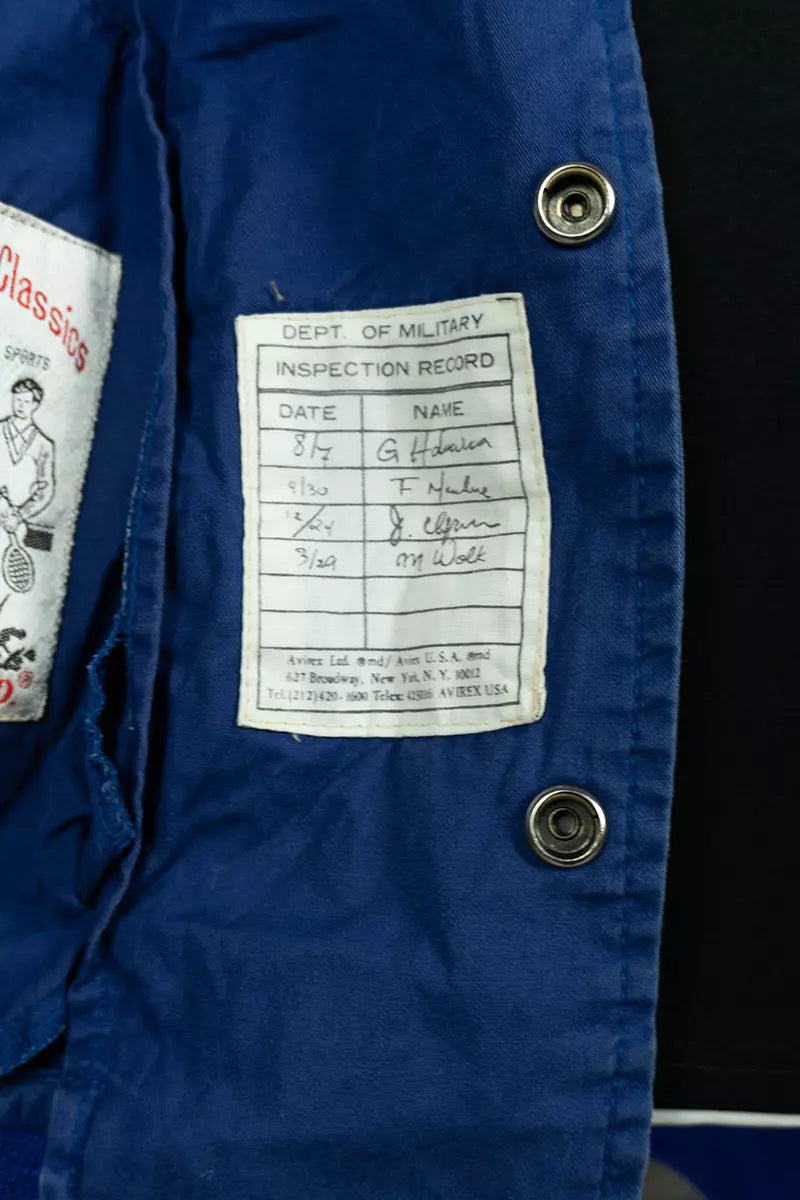 Classics
SPORTS
D.®
DEPT. OF MILITARY
INSPECTION RECORD
DATE NAME
8/7 G
9/30 F
12/24 J.
3/29 M Wolk
Avirex Ltd. ®md/ Avirex U.S.A. ®md
627 Broadway, New York, N. Y. 10012
Tel. (212) 420-1600 Telex: AVIREX USA